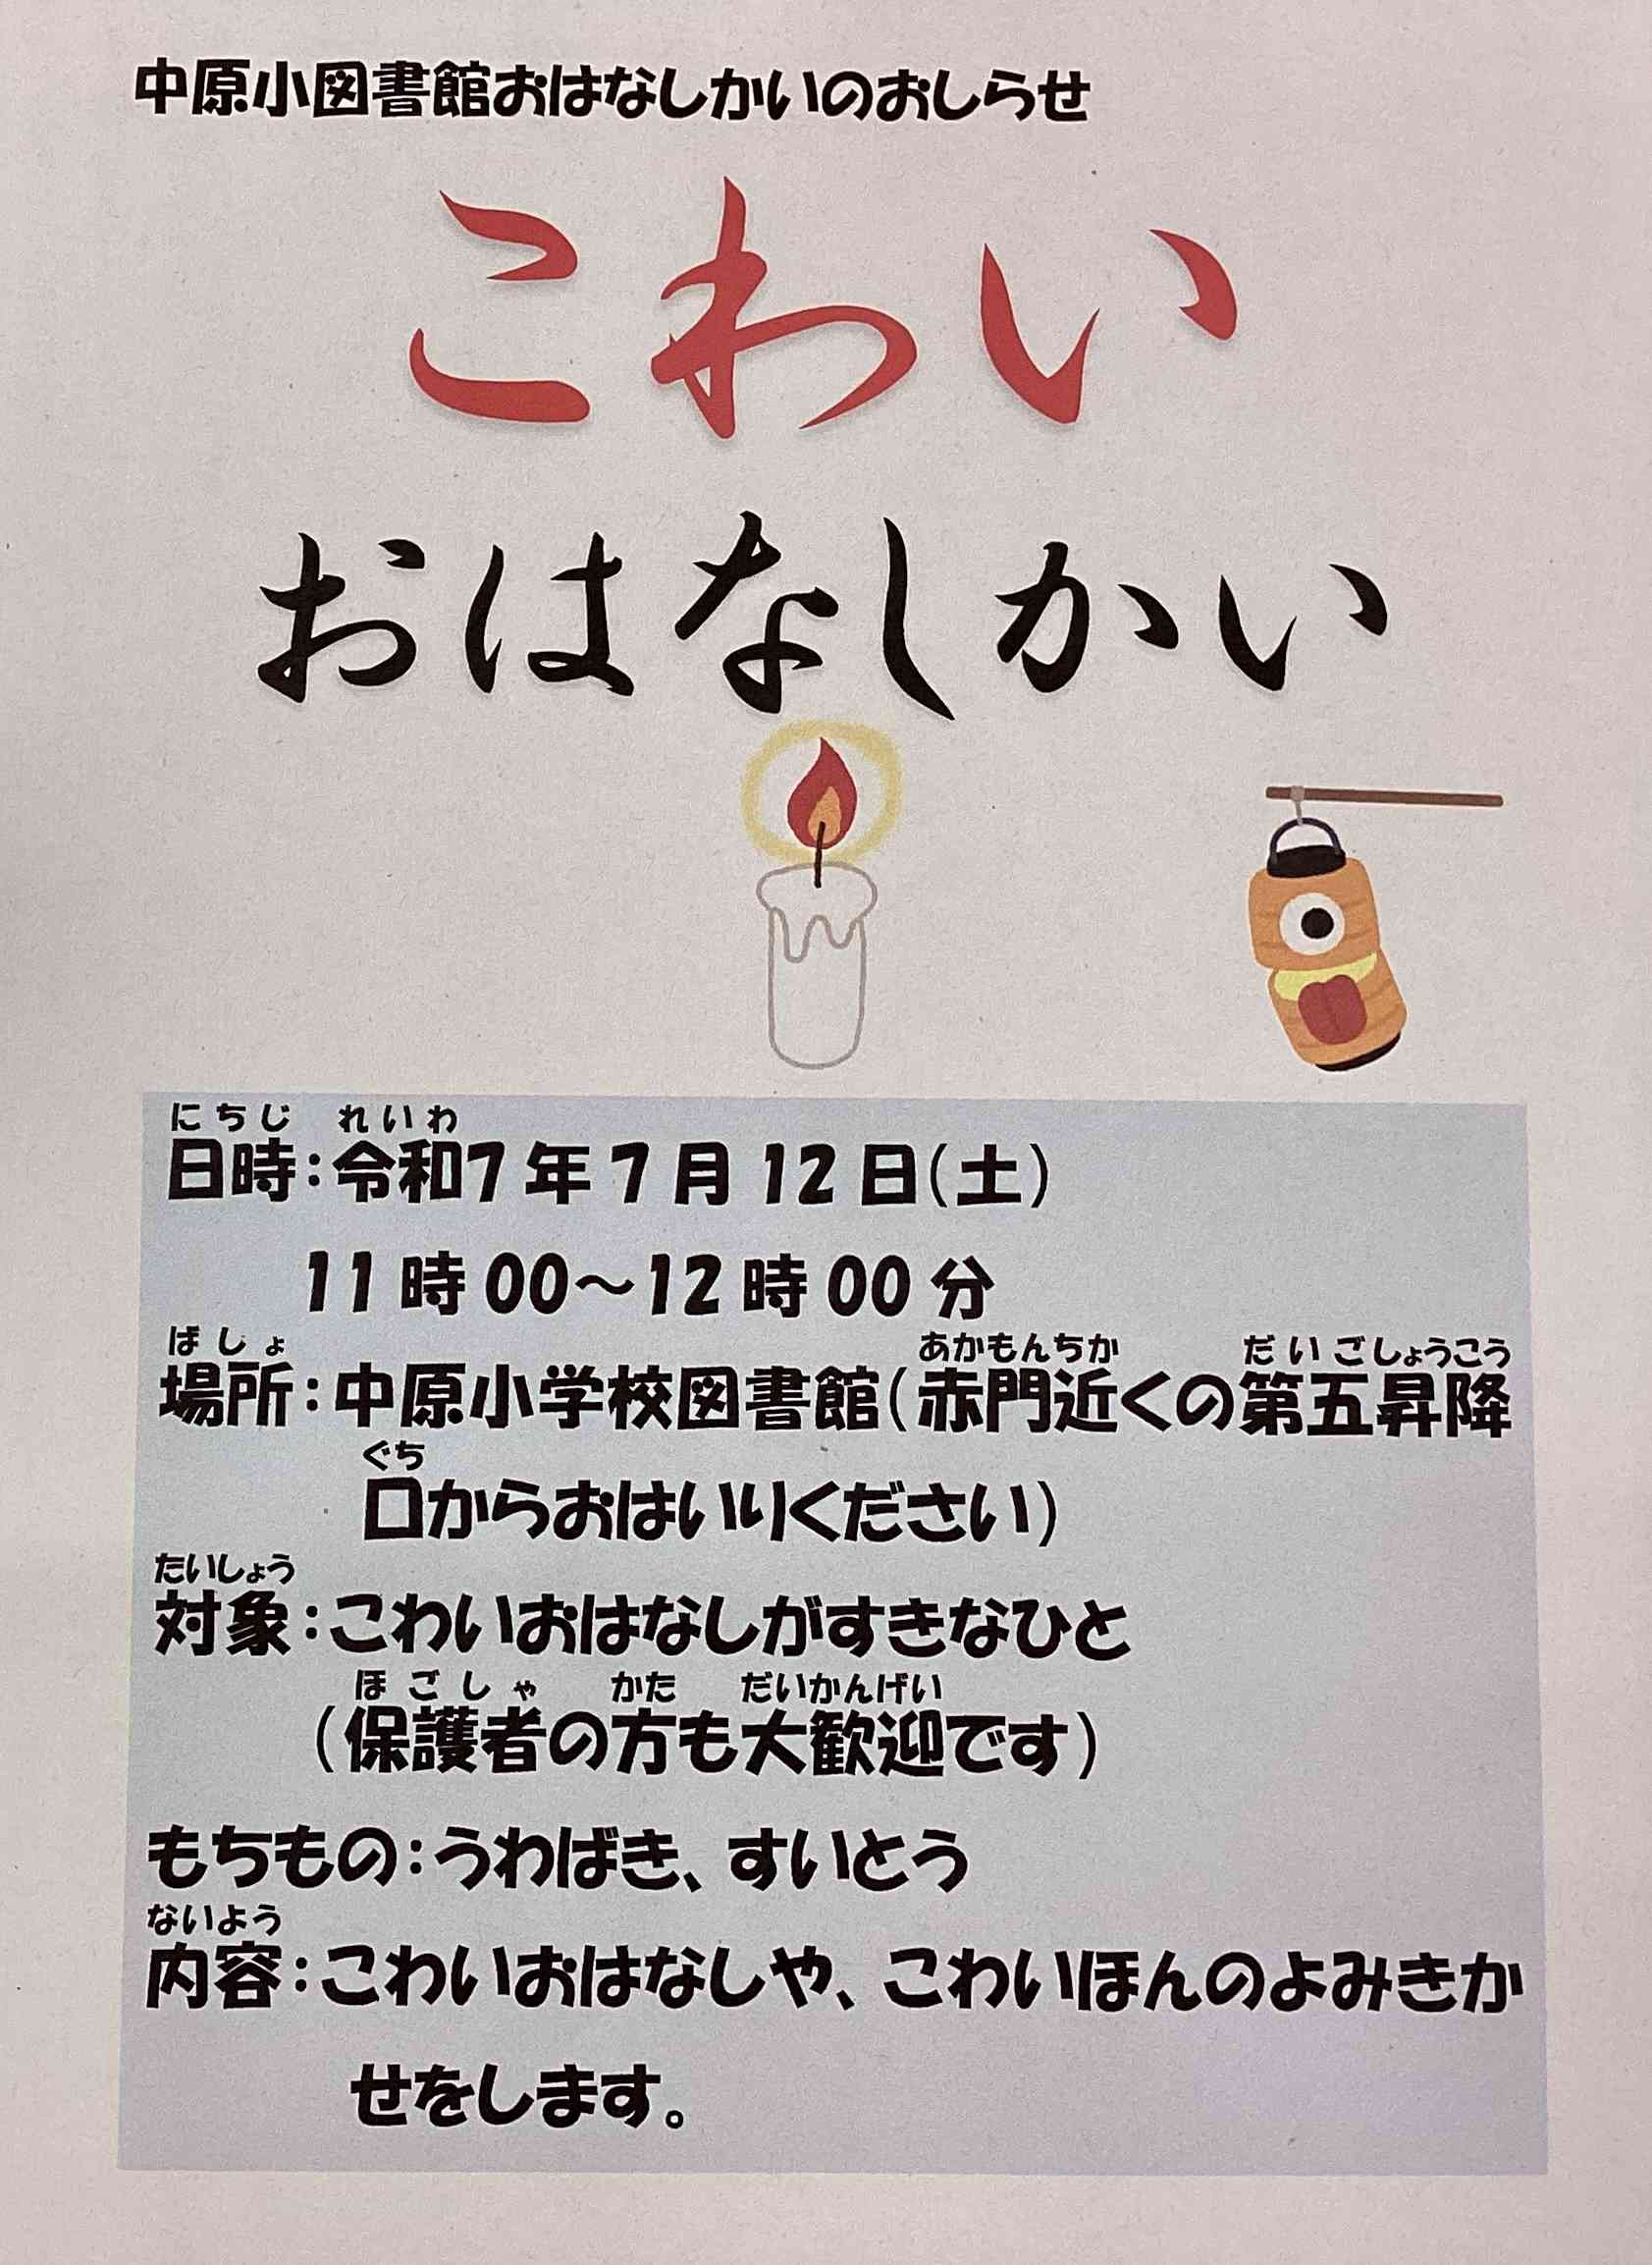 中原小図書館おはなしかいのおしらせ
こわい
おはなしかい
にちじ れいわ
日時：令和7年7月12日（土）
11時00～12時00分
ばしょ あかもんちか だいごしょうこう
場所：中原小学校図書館（赤門近くの第五昇降
ぐち
口からおはいりください）
たいしょう
対象：こわいおはなしがすきなひと
ほごしゃ かた だいかんげい
（保護者の方も大歓迎です）
もちもの：うわばき、すいとう
ないよう
内容：こわいおはなしや、こわいほんのよみきか
せをします。